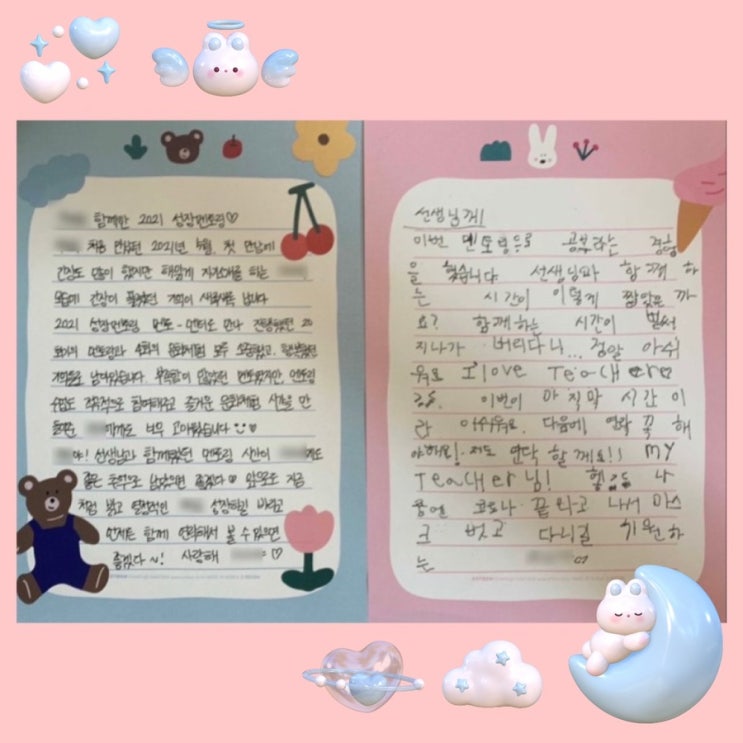 함께한 2021 성장멘토링♡
처음 만났던 2021년 4월. 첫 만남에
긴장도 많이 했지만 해맑게 자기소개를 하는
모습에 긴장이 풀렸던 기억이 새록새록 납니다
2021 성장멘토링 멘토-멘티로 만나 진행했던 20
회기의 멘토링과 4회의 문화체험 모두 소중했고, 행복했던
기억으로 남아있습니다. 부족함이 많았던 멘토였지만, 멘토링
수업도 적극적으로 참여해주고 즐거운 문화체험 시간을 만
들어준 에게도 너무 고마웠습니다
야! 선생님과 함께했던 멘토링 시간이 게도
좋은 추억으로 남았으면 좋겠다 앞으로도 지금
처럼 밝고 멋진 성장하길 바라고
언제든 함께 연락해서 볼 수 있으면
좋겠다~! 사랑해 ♡
선생님께!
이번 멘토링등로 공부라는 경험
을 했습니다 선생님과 함께 하
는 시간이 이렇게 짧았을까
요? 함께하는 시간이 벌써
지나가 버리다니... 정말 아쉬
워요 I love Teacher
이번이 마지막 시간이
라 아쉬워요. 다음에 연락 꼭 해
야해요! 저도 연락 할께요!! my
Teacher님!
코로나 끝나고 나서 마스
크 벗고 다니길 기원하
는